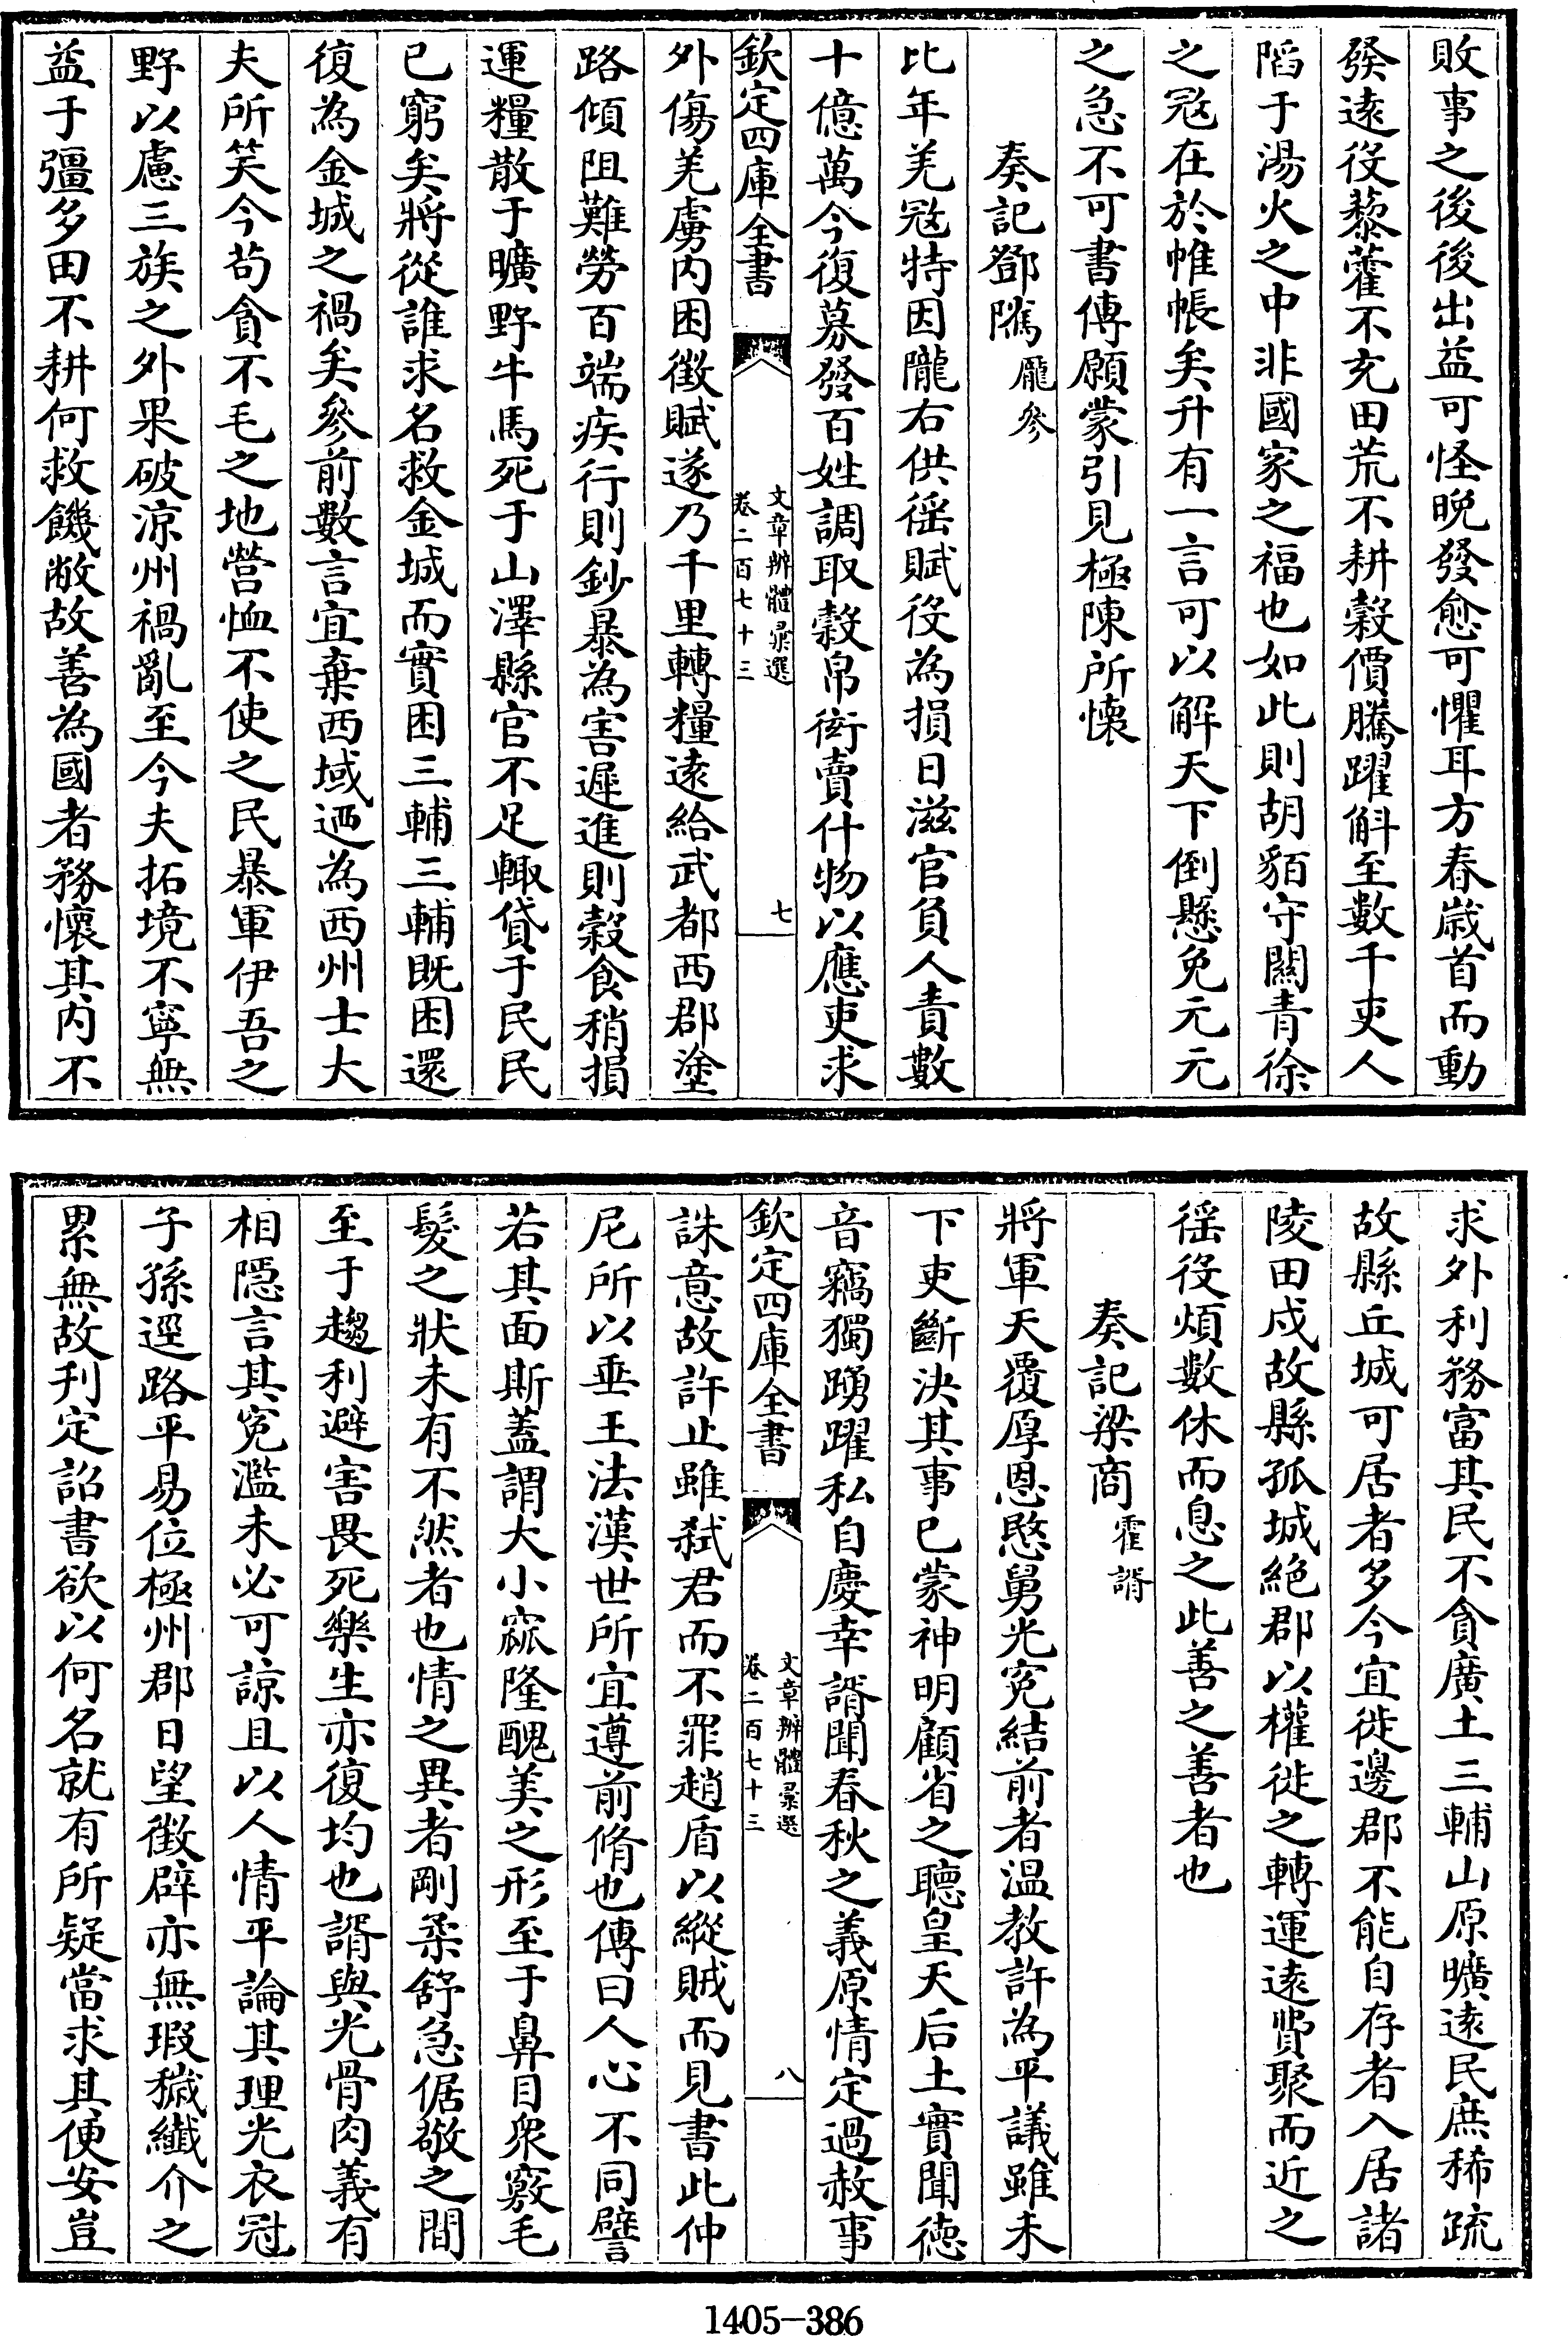 敗事之後後出益可怪晚發愈可懼耳方春歲首而動
發遠役藜藿不充田荒不耕穀價騰躍斛至數千吏人
陷于湯火之中非國家之福也如此則胡貊守闕青徐
之冦在於帷帳矣升有一言可以解天下倒懸免元元
之急不可書傳願蒙引見極陳所懷
奏記鄧隲龐參
比年羌冦特困隴右供徭賦役為損日滋官負人責數
十億萬今復募發百姓調取穀帛衒賣什物以應吏求
欽定四庫全書
文章辨體彚選
卷二百七十三
七
外傷羌虜内困徴賦遂乃千里轉糧遠給武都西郡塗
路傾阻難勞百端疾行則鈔暴為害遲進則穀食稍損
運糧散于曠野牛馬死于山澤縣官不足輙貸于民民
已窮矣將從誰求名救金城而實困三輔三輔既困還
復為金城之禍矣參前數言宜棄西域迺為西州士大
夫所笑今茍貪不毛之地營恤不使之民暴軍伊吾之
野以慮三族之外果破涼州禍亂至今夫拓境不寧無
益于彊多田不耕何救饑敝故善為國者務懷其内不
求外利務富其民不貪廣土三輔山原曠遠民庶稀疏
故縣丘城可居者多今宜徙邊郡不能自存者入居諸
陵田戍故縣孤城絶郡以權徙之轉運遠費聚而近之
徭役煩數休而息之此善之善者也
奏記梁商霍諝
將軍天覆厚恩愍舅光寃結前者温教許為平議雖未
下吏斷決其事已蒙神明顧省之聽皇天后土實聞德
音竊獨踴躍私自慶幸諝聞春秋之義原情定過赦事
欽定四庫全書
文章辨體彚選
卷二百七十三
八
誅意故許止雖弑君而不罪趙盾以縱賊而見書此仲
尼所以垂王法漢世所宜遵前脩也傳曰人心不同譬
若其面斯蓋謂大小窳隆醜美之形至于鼻目衆竅毛
髮之狀未有不然者也情之異者剛柔舒急倨敬之間
至于趨利避害畏死樂生亦復均也諝與光骨肉義有
相隱言其寃濫未必可諒且以人情平論其理光衣冠
子孫逕路平易位極州郡日望徴辟亦無瑕穢纎介之
累無故刋定詔書欲以何名就有所疑當求其便安豈
1405-386